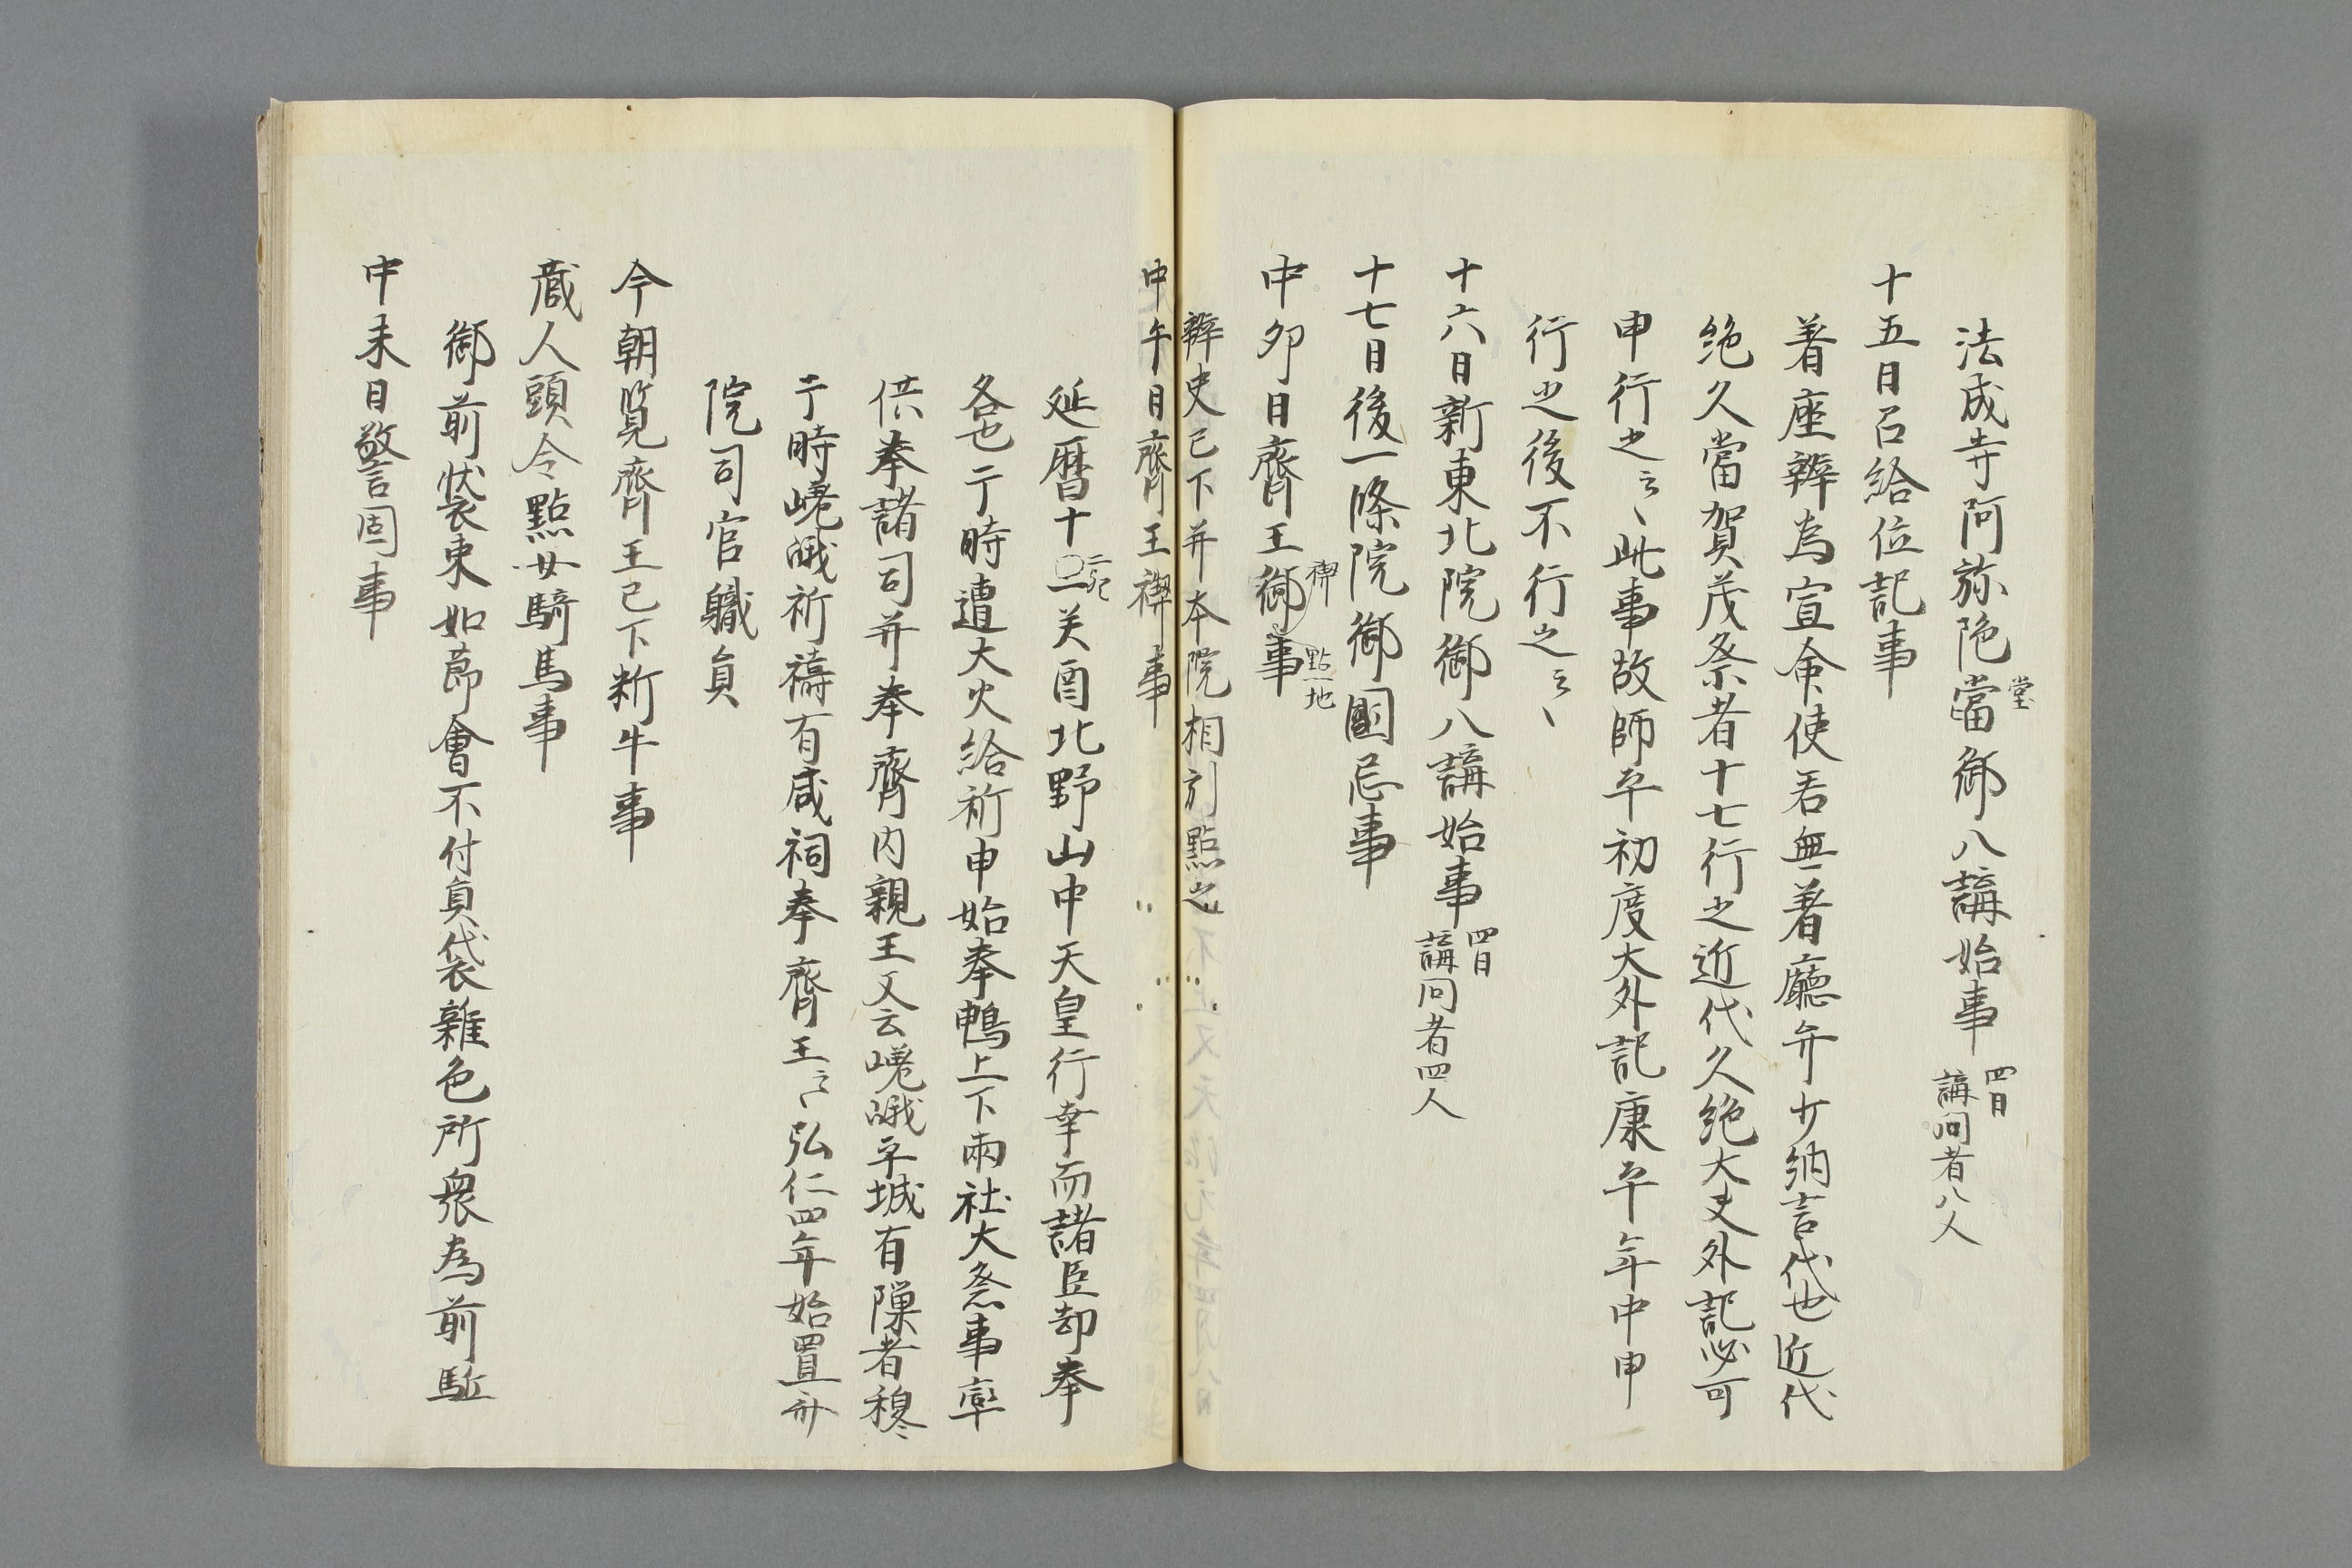 法成寺阿弥陁當御八講始事 四日 講問者八人
堂
十五日召給位記事
着座辨為宣命使若無着廳弁少納言代也近代
絶久當賀茂祭者十七行之近代久絶大夫外記必可
申行之云々此事故師平初度大外記康平年中申
行之後不行之云々
十六日新東北院御八講始事 四日 講問者四人
十七日後一條院御國忌事
中夘日齊王御事
禊 點地
辨史已下并本院相引點之
中午日齊王禊事
延暦十二癸酉北野山中天皇行幸而諸臣却奉
各也于時遭大火給祈申始奉鴨上下兩社大祭事率
供奉諸司并奉齊内親王又云嵯峨平城有隟者穆
于時嵯峨祈禱有感祠奉齊王云々弘仁四年始置弁
院司官軄員
今朝覧齊王已下新牛事
蔵人頭令點女騎馬事
御前裝束如節會不付負袋雜色所衆為前駈
中未日警固事